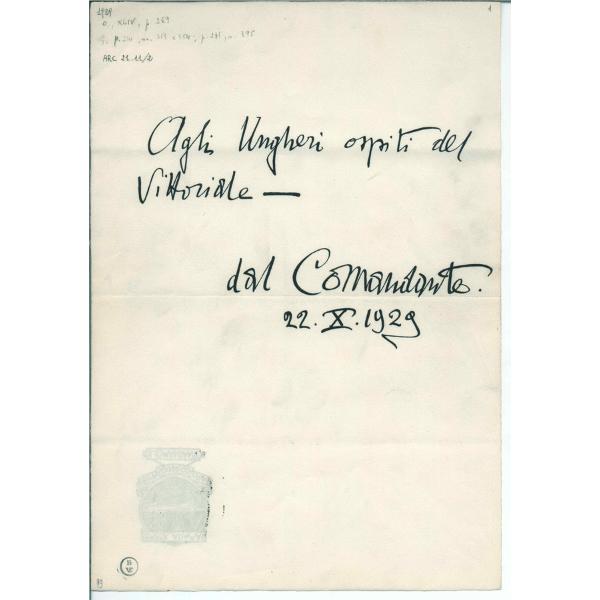 1929
ARC 21.11/2
1
Agli Ungheri ospiti del
Vittoriale —
dal Comandante.
22.X.1929